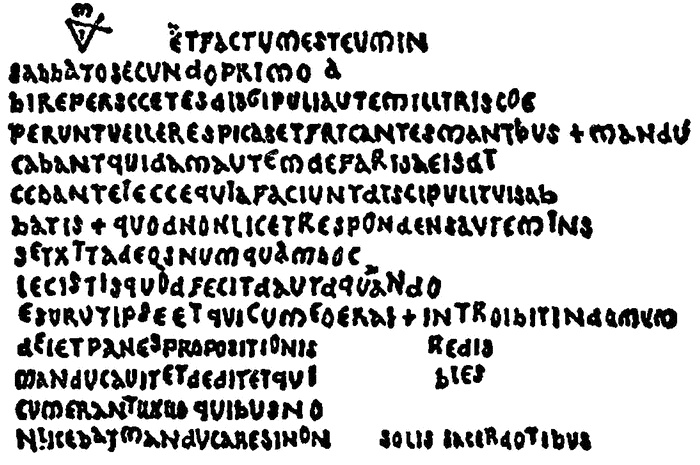 ETFACTUMESTEUMIN
SAbbATOSECUNdOPRIMO A
bIREPERSCCETESdISGIPULIAUTEMILLITRISCOE
PERUNTVELLERESPICASETFRICANTESMANTbUS + MANdU
CAbANTQUIdAMAUTEMdEFARISAEISdT
CEbANTEIECCEQUIAFACIUNTdISCIPULITVISAb
bATIS + QUOdNONLICETRESPONdENSAUTEMINS
SETXTTAdEOSNUMQUAMbOC
LECISTISQUOdFECITdAUTdQUANdO
ESURUTIPSEETQUICUMEOERAT + INTROIbITINdOMUM
dEIETPANESPROPOSITIONIS REdIS
MANdUCAUITETdEdITETQUI bLES
CUMERANTUXUO QUIbUSNO
NLICEbATMANdUCARESINON SOLIS SACERdOTIbUS